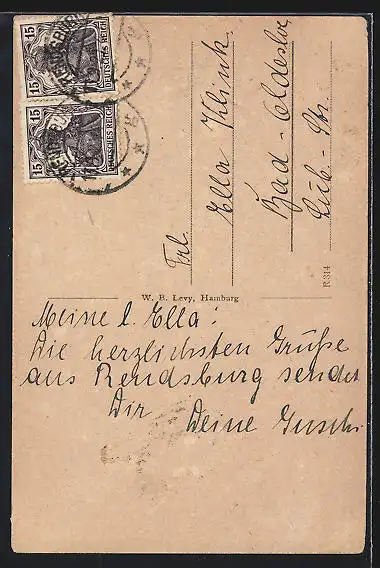 15
DEUTSCHES REICH
15
DEUTSCHES REICH
Frl.
Ella Klink
Bad-Oldesloe
Lüb-Str.
R 314
W. B. Levy, Hamburg
Meine l. Ella!
Die herzlichsten Grüße
aus Rendsburg sendet
Dir Deine Guschi